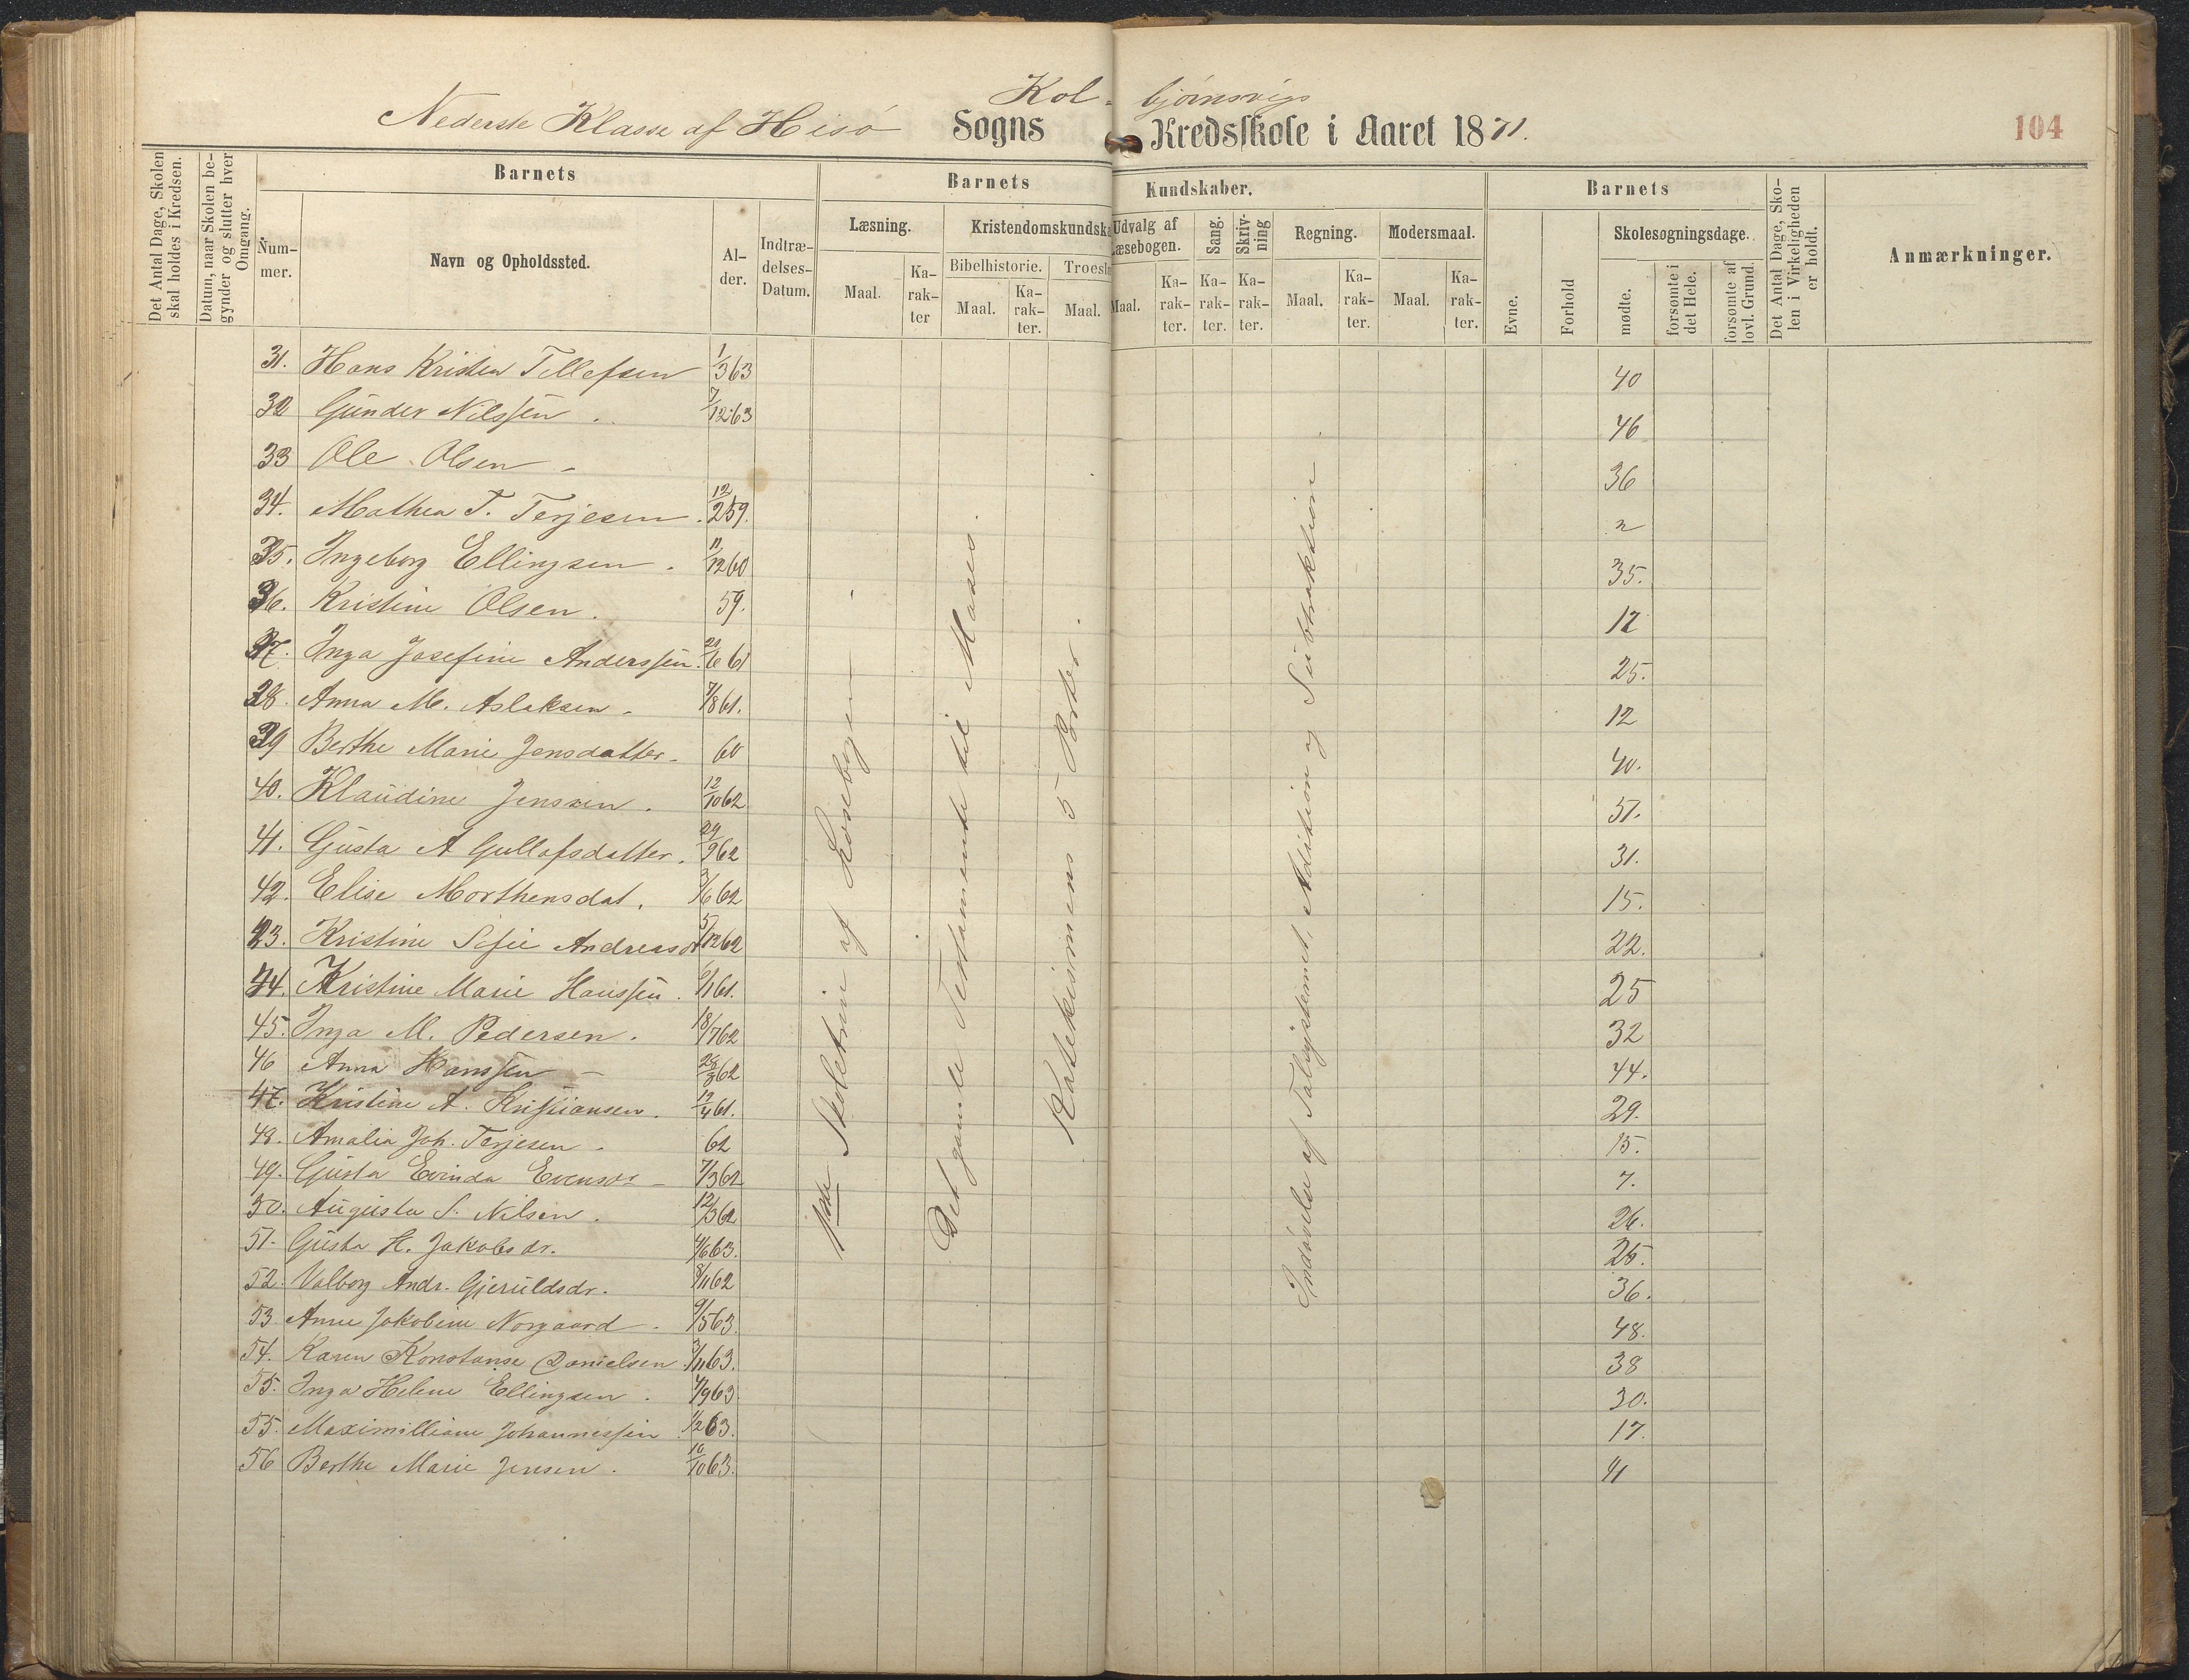 Kol- bjørnsvigs
Nederste Klasse af Hisø Sogns Kredsskole i Aaret 1871.
104
Det Antal Dage, Skolen skal holdes i Kredsen.
Datum, naar Skolen be- gynder og slutter hver Omgang.
Barnets
Num- mer.
Navn og Opholdssted.
Al- der.
Indtræ- delses- Datum.
Barnets Kundskaber.
Læsning.
Maal.
Ka- rak- ter
Kristendomskundska
Bibelhistorie.
Maal.
Ka- rak- ter.
Troesl
Maal.
Udvalg af Læsebogen.
Maal.
Ka- rak- ter.
Sang.
Ka- rak- ter.
Skriv- ning
Ka- rak- ter.
Regning.
Maal.
Ka- rak- ter.
Modersmaal.
Maal.
Ka- rak- ter.
Barnets
Evne.
Forhold
Skolesøgningsdage.
mødte.
forsømte i det Hele.
forsømte af lovl. Grund.
Det Antal Dage, Sko- len i Virkeligheden er holdt.
Anmærkninger.
31. Hans Kristen Tellefsen 1/3 63 40
32 Gunder Nilssen . 7/12 63 46
33 Ole Olsen - 36
34. Mathea T. Terjesen . 12/2 59. 2
35. Ingeborg Ellingsen . 11/12 60 35.
36. Kristine Olsen . 59. 12
37. Inga Josefine Anderssen . 6 61 25.
38. Anna M. Aslaksen - 7/8 61. 12
39 Berthe Marie Jensdatter - 60 40.
40. Klaudine Jenssen . 12/10 62 51.
41. Gusta A Gullofsdatter . 29/9 62 31.
42. Elise Morthensdat. 3/6 62 15.
43. Kristine Sofie Andreasdr 5/12 62 22.
44. Kristine Marie Hanssen . 6/1 61. 25
45. Inga M. Pedersen . 18/7 62 32
46 Anna Hanssen - 62 44.
47. Kristine A. Kristiansen . 12/4 61. 29.
48. Amalia Joh. Terjesen . 62 15.
49. Gusta Evinda Evensdr - 7/3 62 7.
50. Augusta S. Nilsen . 12/3 62 26.
51. Gusta H. Jakobsdr. 4/6 63. 25.
52. Valborg Andr. Gjeruldsdr. 8/11 62 36.
53. Anne Jakobine Norgaard . 9/5 63. 48.
54. Karen Konstanse Danielsen . 3/11 63. 38
55. Inga Helene Ellingsen . 4/9 63 30.
55. Maximilliane Johannessen . 1/2 63. 17.
56 Berthe Marie Jensen . 10/10 63. 41
1ste Skoletrin af Læsebogen
Det gamle Testamente til Moses
Katekismens 5 Parter.
Indøvelse af Talsystemet, Addition og Subtraktion